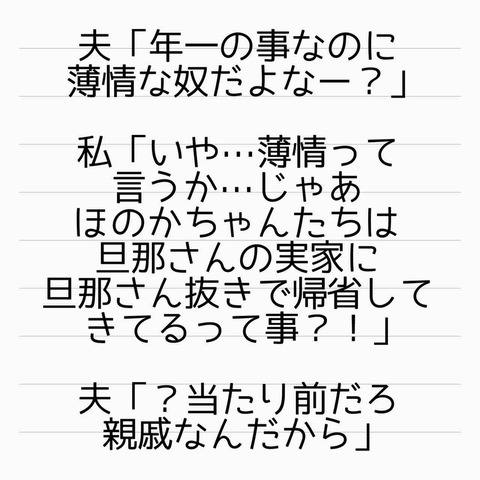 夫「年一の事なのに
薄情な奴だよなー？」
私「いや…薄情って
言うか…じゃあ
ほのかちゃんたちは
旦那さんの実家に
旦那さん抜きで帰省して
きてるって事？！」
夫「？当たり前だろ
親戚なんだから」